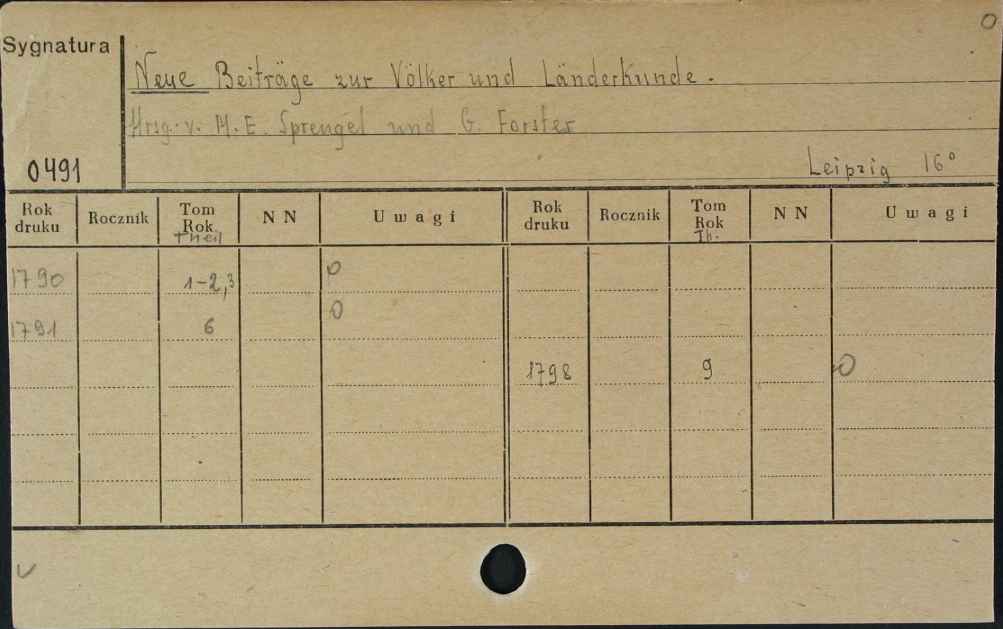 O
Sygnatura
Neue Beiträge zur Völker und Länderkunde.
Hrsg. v. M. E. Sprengel und G. Forster
Leipzig 16°
0491
Rok druku Rocznik Tom Rok Theil NN Uwagi Rok druku Rocznik Tom Rok Th. NN Uwagi
1790 1-2,3 O
1791 6 O
1798 9 O